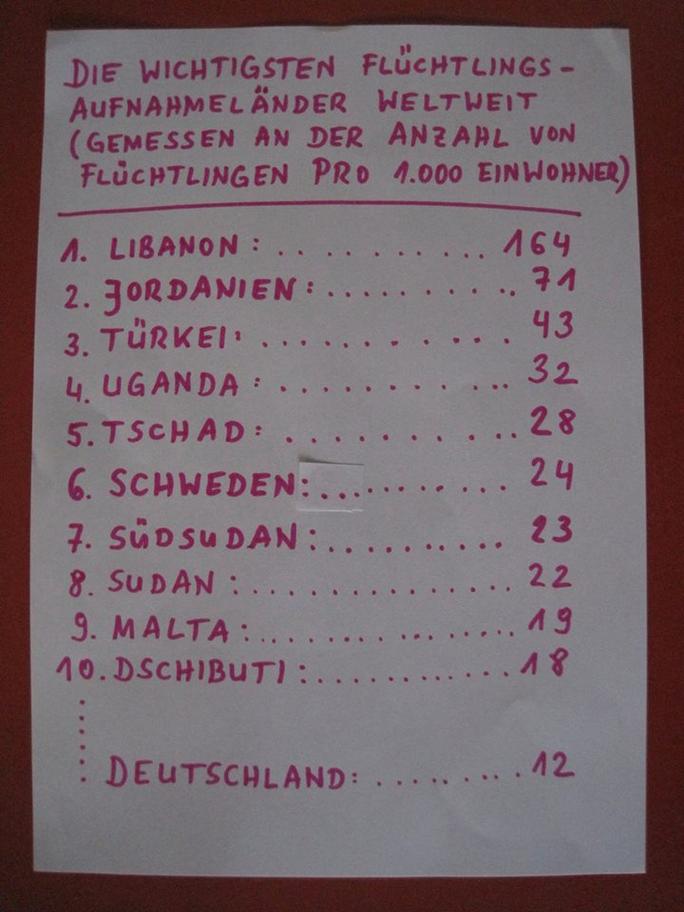 DIE WICHTIGSTEN FLÜCHTLINGS-
AUFNAHMELÄNDER WELTWEIT
(GEMESSEN AN DER ANZAHL VON
FLÜCHTLINGEN PRO 1.000 EINWOHNER)
1. LIBANON: . . . . . . . . . . . 164
2. JORDANIEN: . . . . . . . . . . . 71
3. TÜRKEI: . . . . . . . . . . . . 43
4. UGANDA: . . . . . . . . . . . . 32
5. TSCHAD: . . . . . . . . . . . 28
6. SCHWEDEN: . . . . . . . . . . . 24
7. SÜDSUDAN: . . . . . . . . . . . 23
8. SUDAN: . . . . . . . . . . . . . 22
9. MALTA: . . . . . . . . . . . . . . 19
10. DSCHIBUTI: . . . . . . . . . . . . 18
DEUTSCHLAND: . . . . . . . . . 12